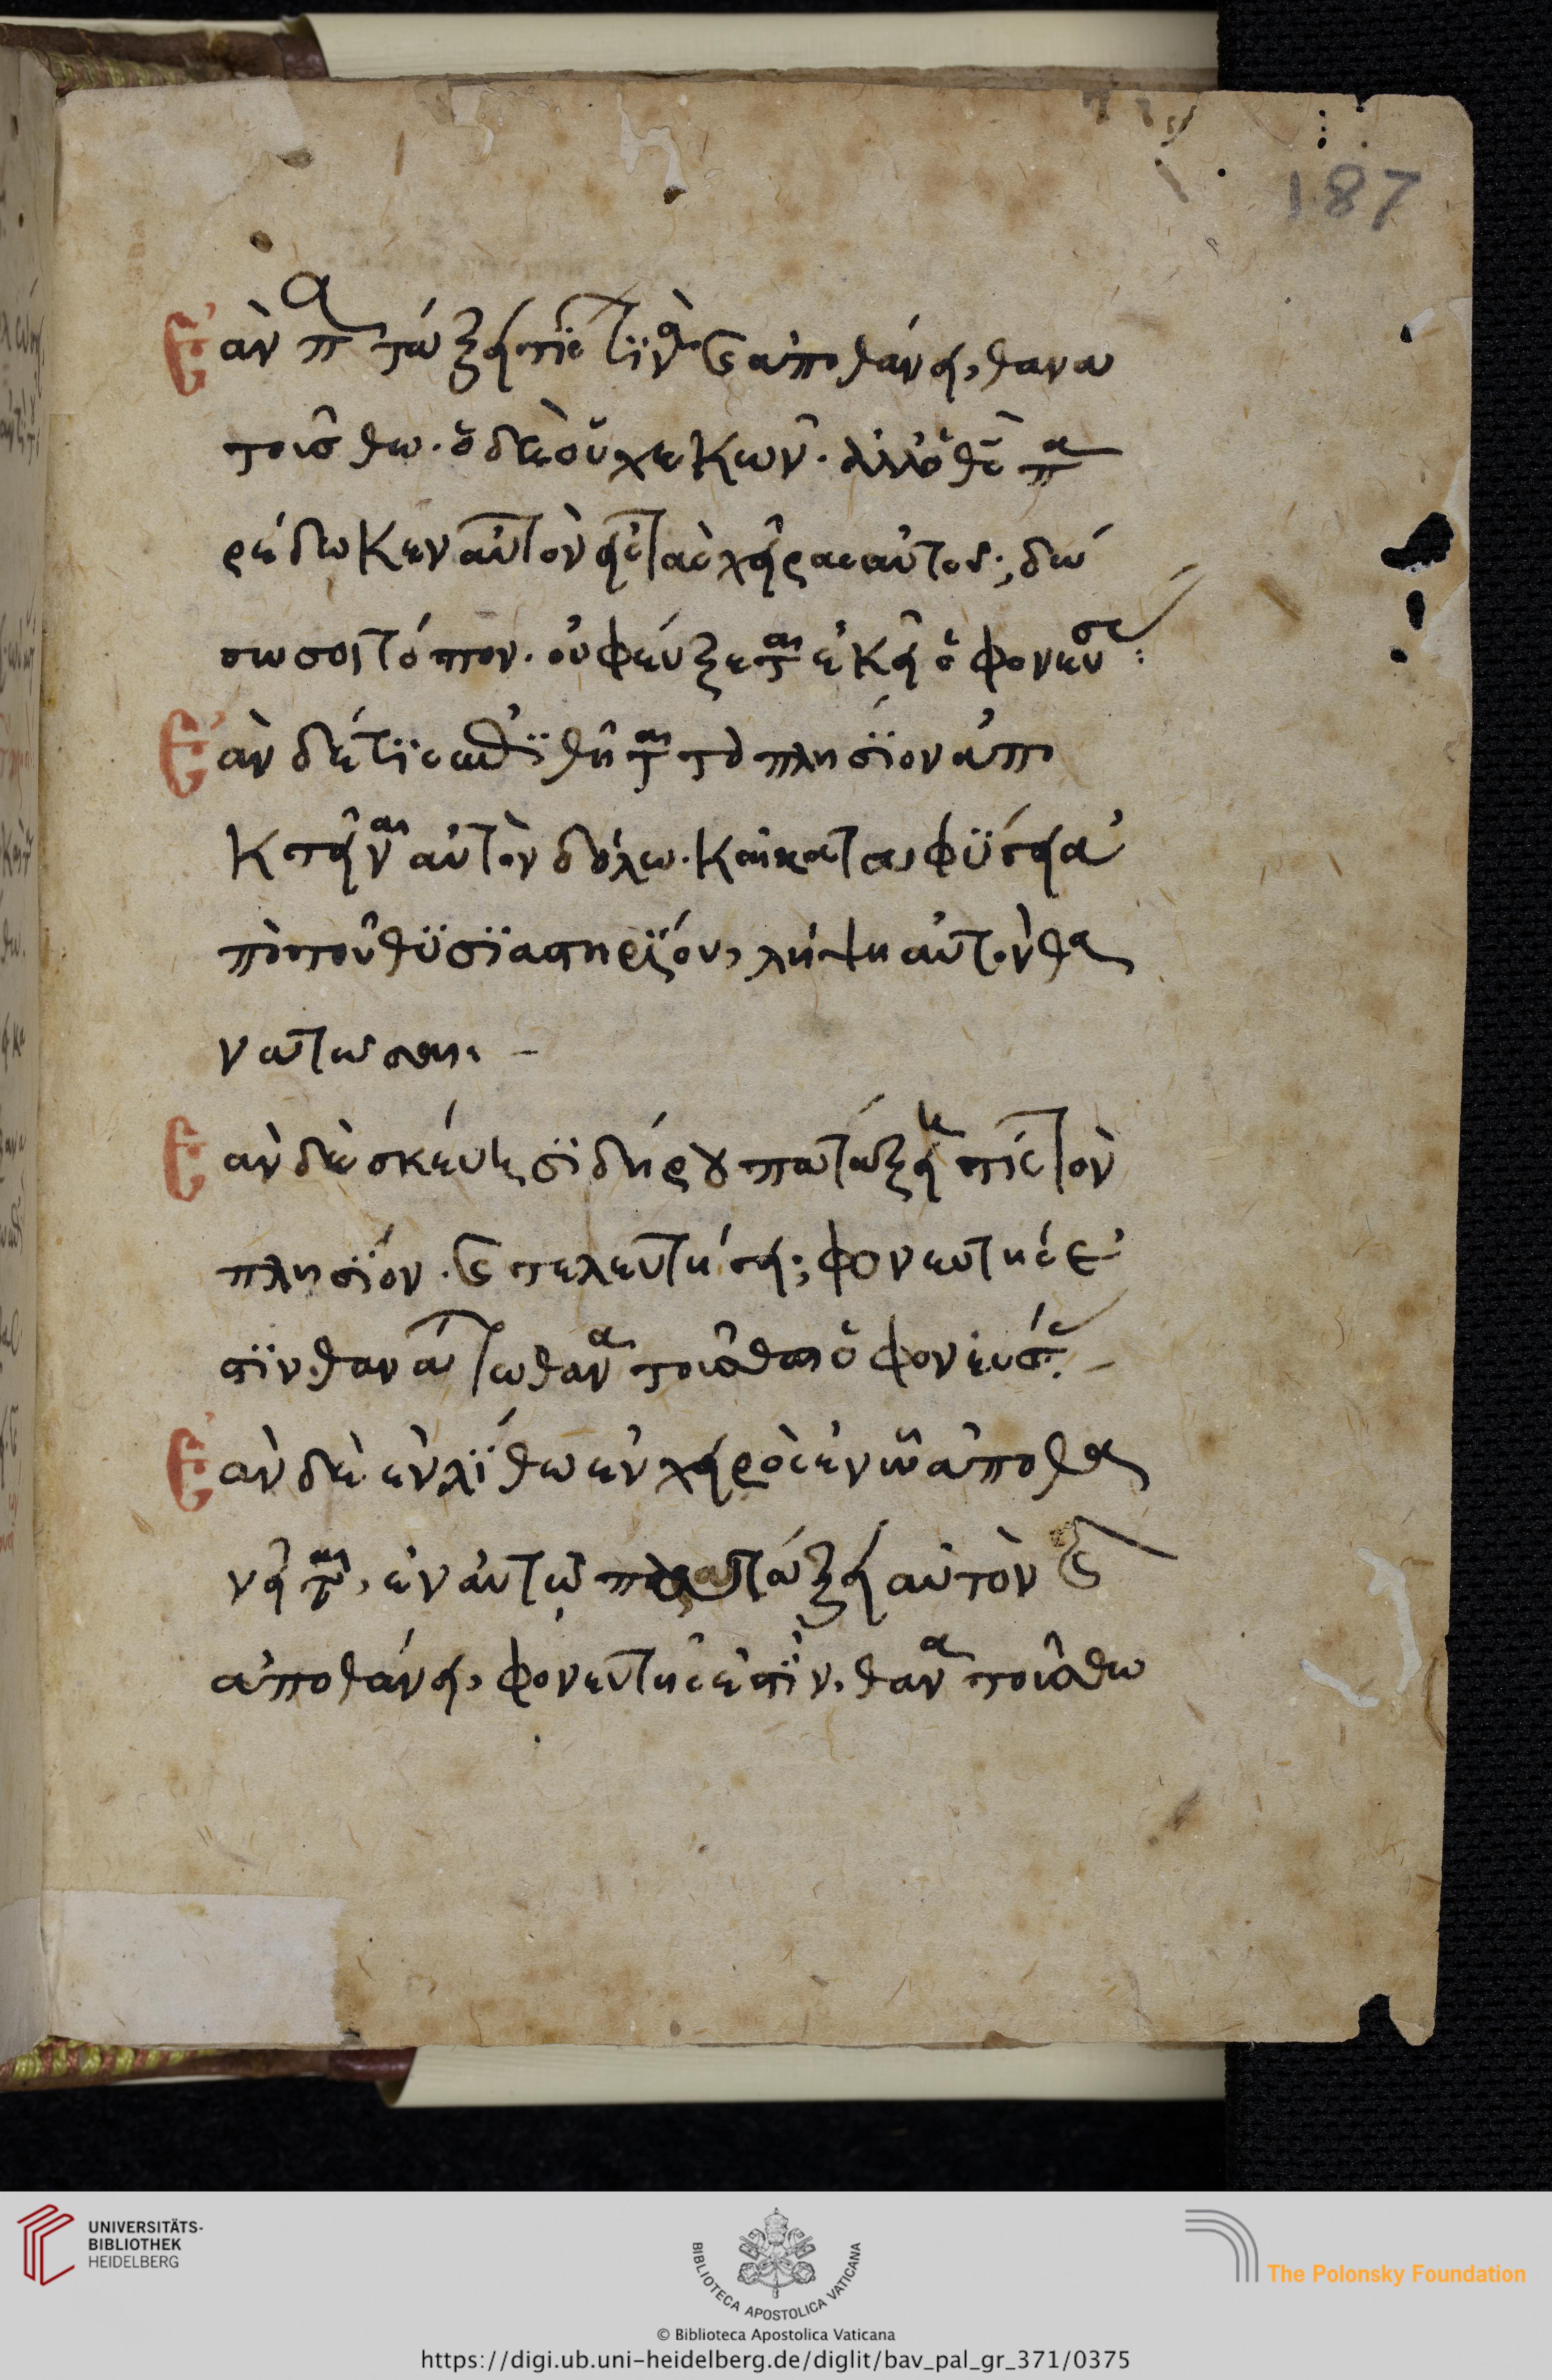 187
Ἐὰν πατάξει τίς τϊνὰ καὶ ἀποθάνει, θανα
τούσθω. ὁ δὲ οὐχ ἑκὼν. ἀλλ' ὁ θς πα
ρέδωκεν αὐτὸν εἰς τὰς χεῖρας αὐτοῦ; δώ
σω σοι τόπον. οὗ φεύξεται ἐκεῖ ὁ φονεύσας:
Ἐὰν δέ τϊς ἐπϊθῆται τὸ πλησϊον ἀπο
κτεῖναι αὐτὸν δόλω. καὶ καταφϋγει ἀ
πὸ τοῦ θϋσϊαστηρϊου, λήψη αὐτὸν θα
νατωσαι. –
Ἐὰν δὲ σκεύει σϊδήρου πατάξει τίς τὸν
πλησϊον. καὶ τελευτήσει; φονευτής ἐ
στϊν. θανάτω θανατούσθω ὁ φονεύσας. –
Ἐὰν δὲ ἐν λϊθω ἐν χειρὸς ἐν ὧ ἀποθα
νεῖται, ἐν αὐτῶ πατάξει αὐτὸν καὶ
ἀποθάνει, φονευτής ἐστϊν. θανατούσθω
UNIVERSITÄTS-
BIBLIOTHEK
HEIDELBERG
BIBLIOTECA APOSTOLICA VATICANA
The Polonsky Foundation
© Biblioteca Apostolica Vaticana
https://digi.ub.uni-heidelberg.de/diglit/bav_pal_gr_371/0375